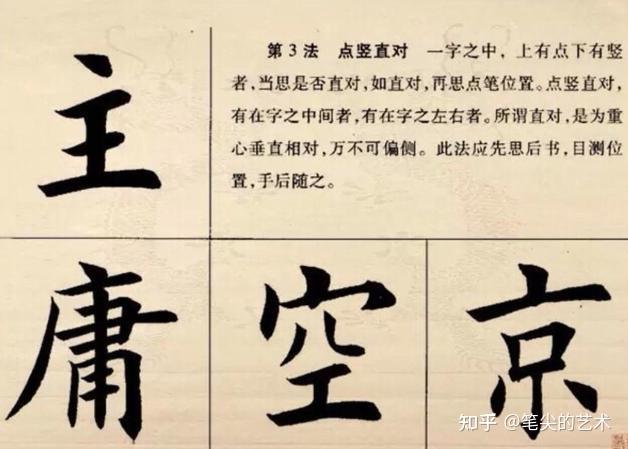 主
第3法 点竖直对 一字之中，上有点下有竖
者，当思是否直对，如直对，再思点笔位置。点竖直对，
有在字之中间者，有在字之左右者。所谓直对，是为重
心垂直相对，万不可偏侧。此法应先思后书，目测位
置，手后随之。
庸 空 京
知乎 @笔尖的艺术